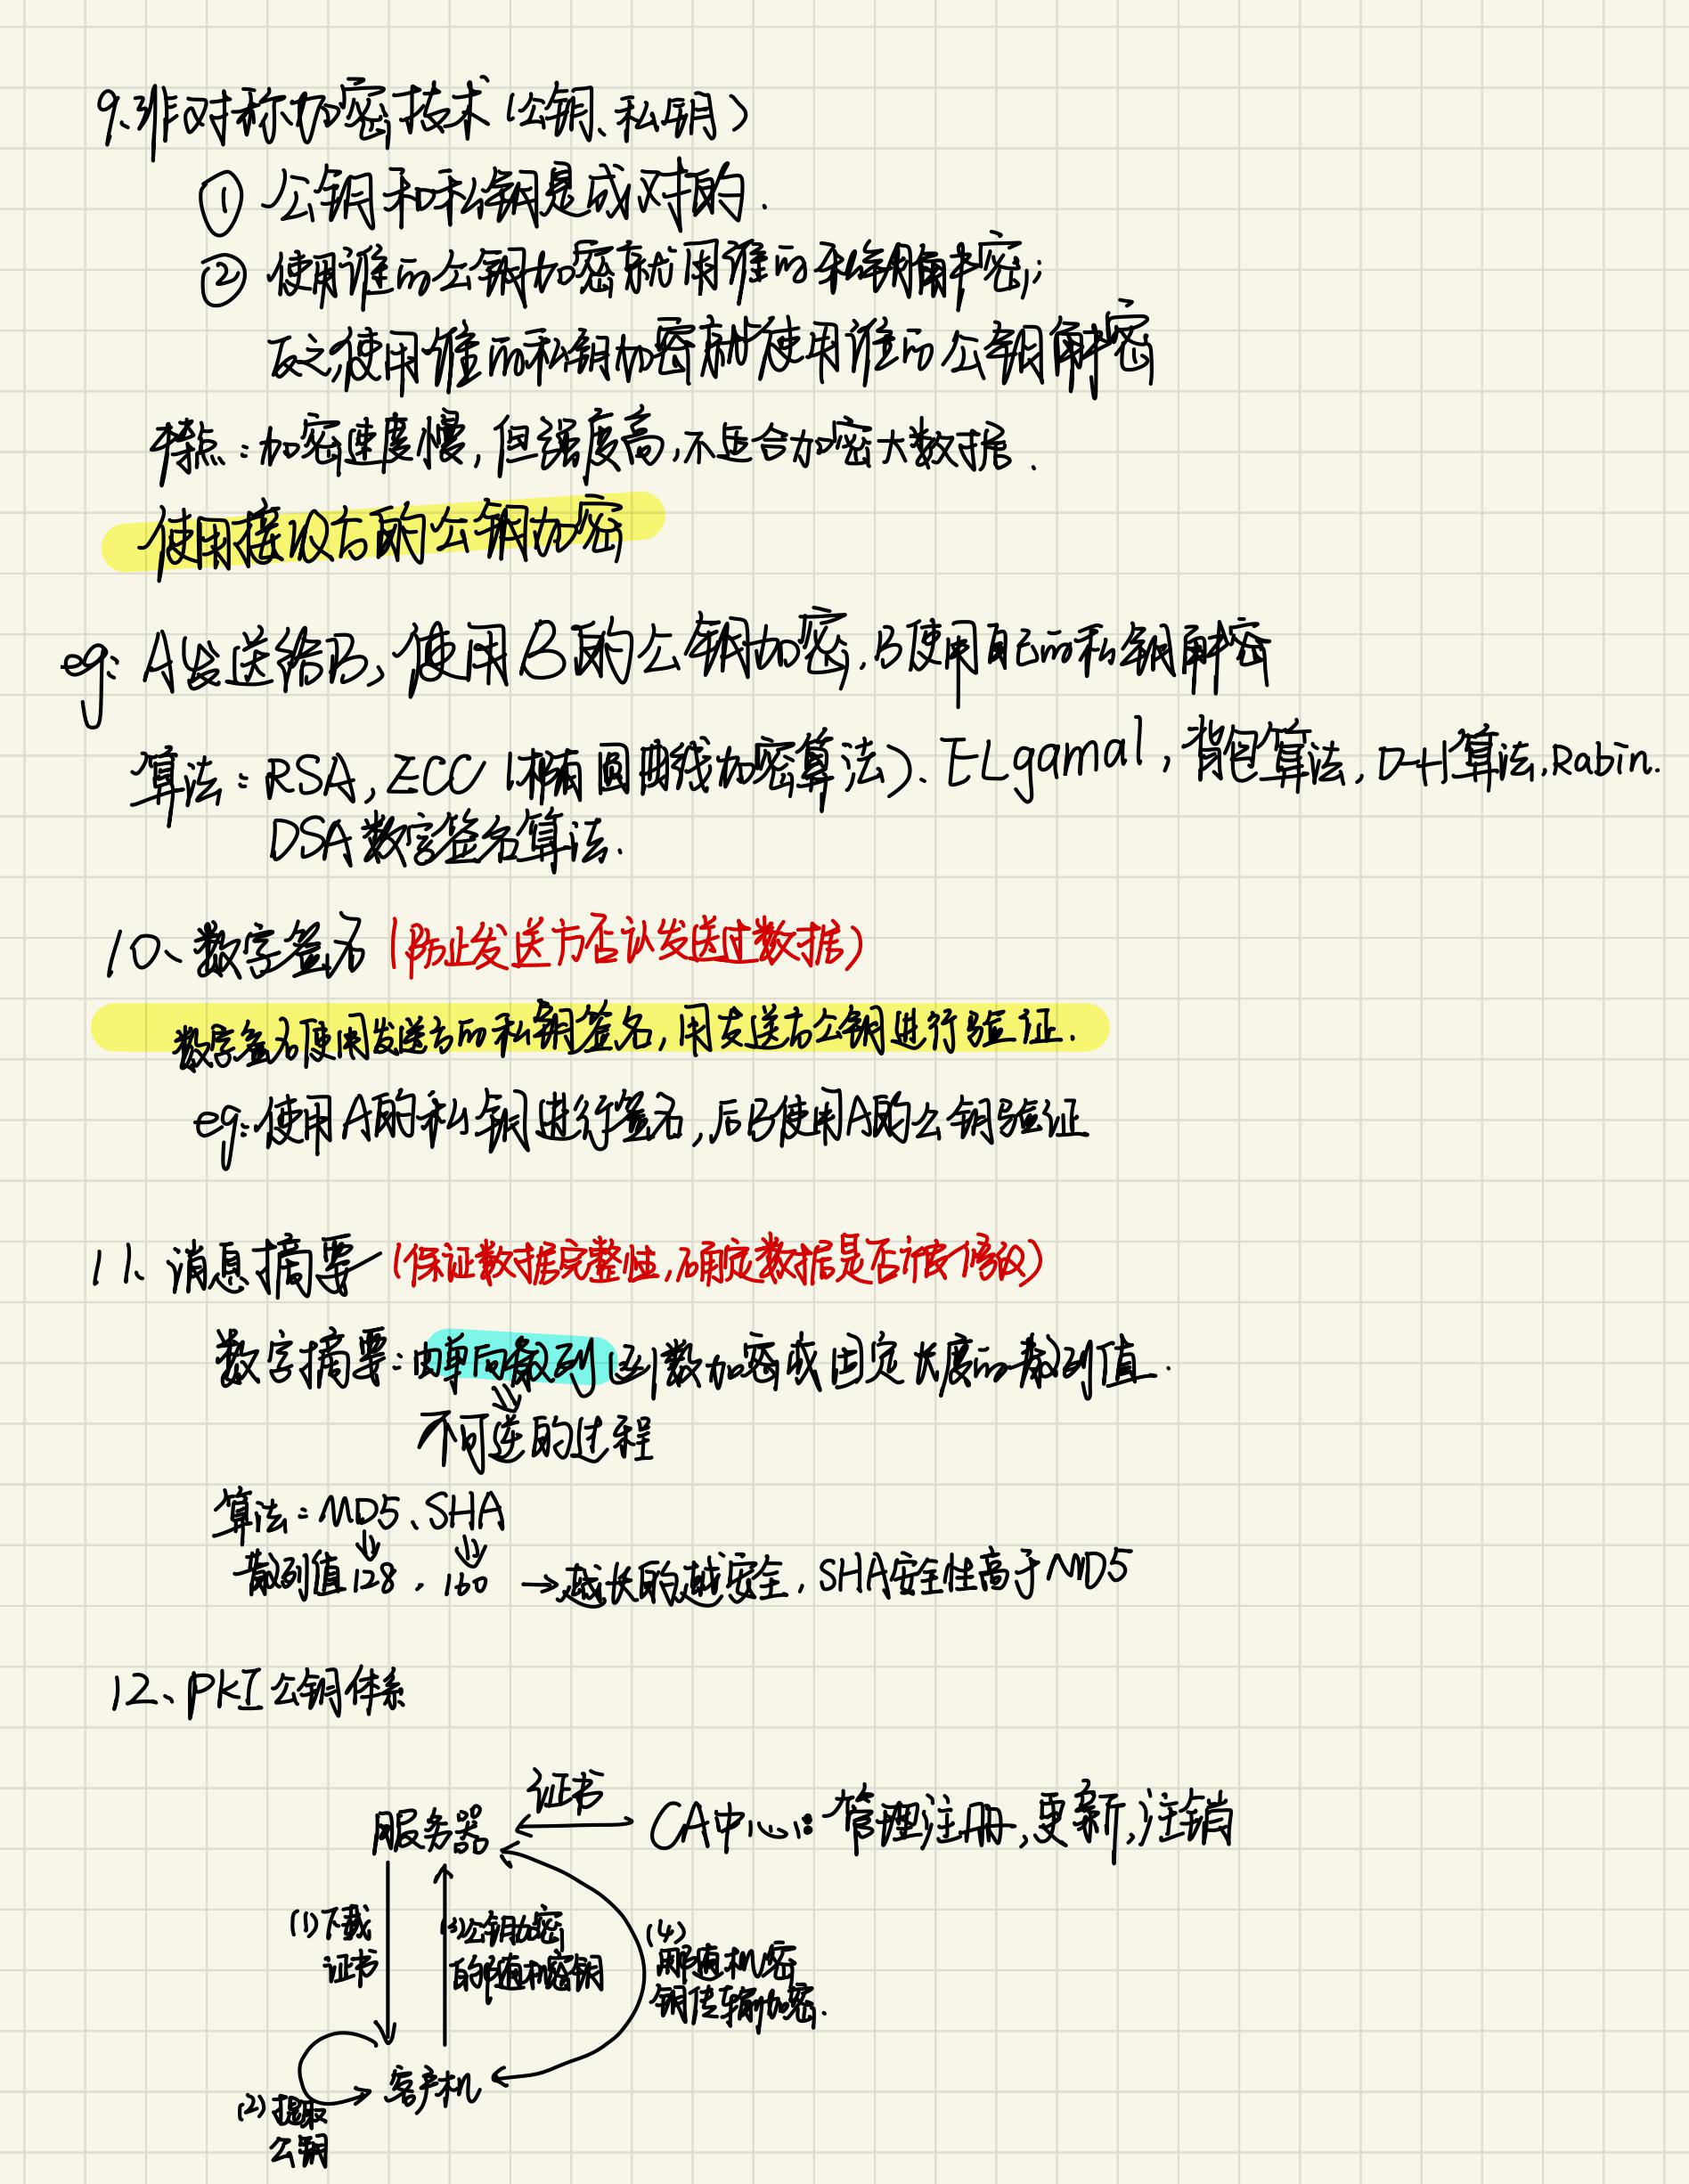 9、非对称加密技术(公钥、私钥)
① 公钥和私钥是成对的.
② 使用谁的公钥加密就用谁的私钥解密;
反之,使用谁的私钥加密就使用谁的公钥解密
特点:加密速度慢,但强度高,不适合加密大数据.
使用接收方的公钥加密
eg: A发送给B,使用B的公钥加密,B使用自己的私钥解密
算法:RSA,ECC(椭圆曲线加密算法)、ELgamal,背包算法,D-H算法,Rabin.
DSA数字签名算法.
10、数字签名(防止发送方否认发送过数据)
数字签名使用发送方的私钥签名,用发送方公钥进行验证.
eg:使用A的私钥进行签名,后B使用A的公钥验证
11、消息摘要(保证数据完整性,确定数据是否被修改)
数字摘要:由单向散列函数加密成固定长度的散列值.
不可逆的过程
算法:MD5、SHA
散列值128,160 →越长的越安全,SHA安全性高于MD5
12、PKI公钥体系
证书
服务器 CA中心:管理注册,更新,注销
(1)下载
证书
(3)公钥加密
的随机密钥
(4)
用随机密
钥传输加密.
客户机
(2)提取
公钥